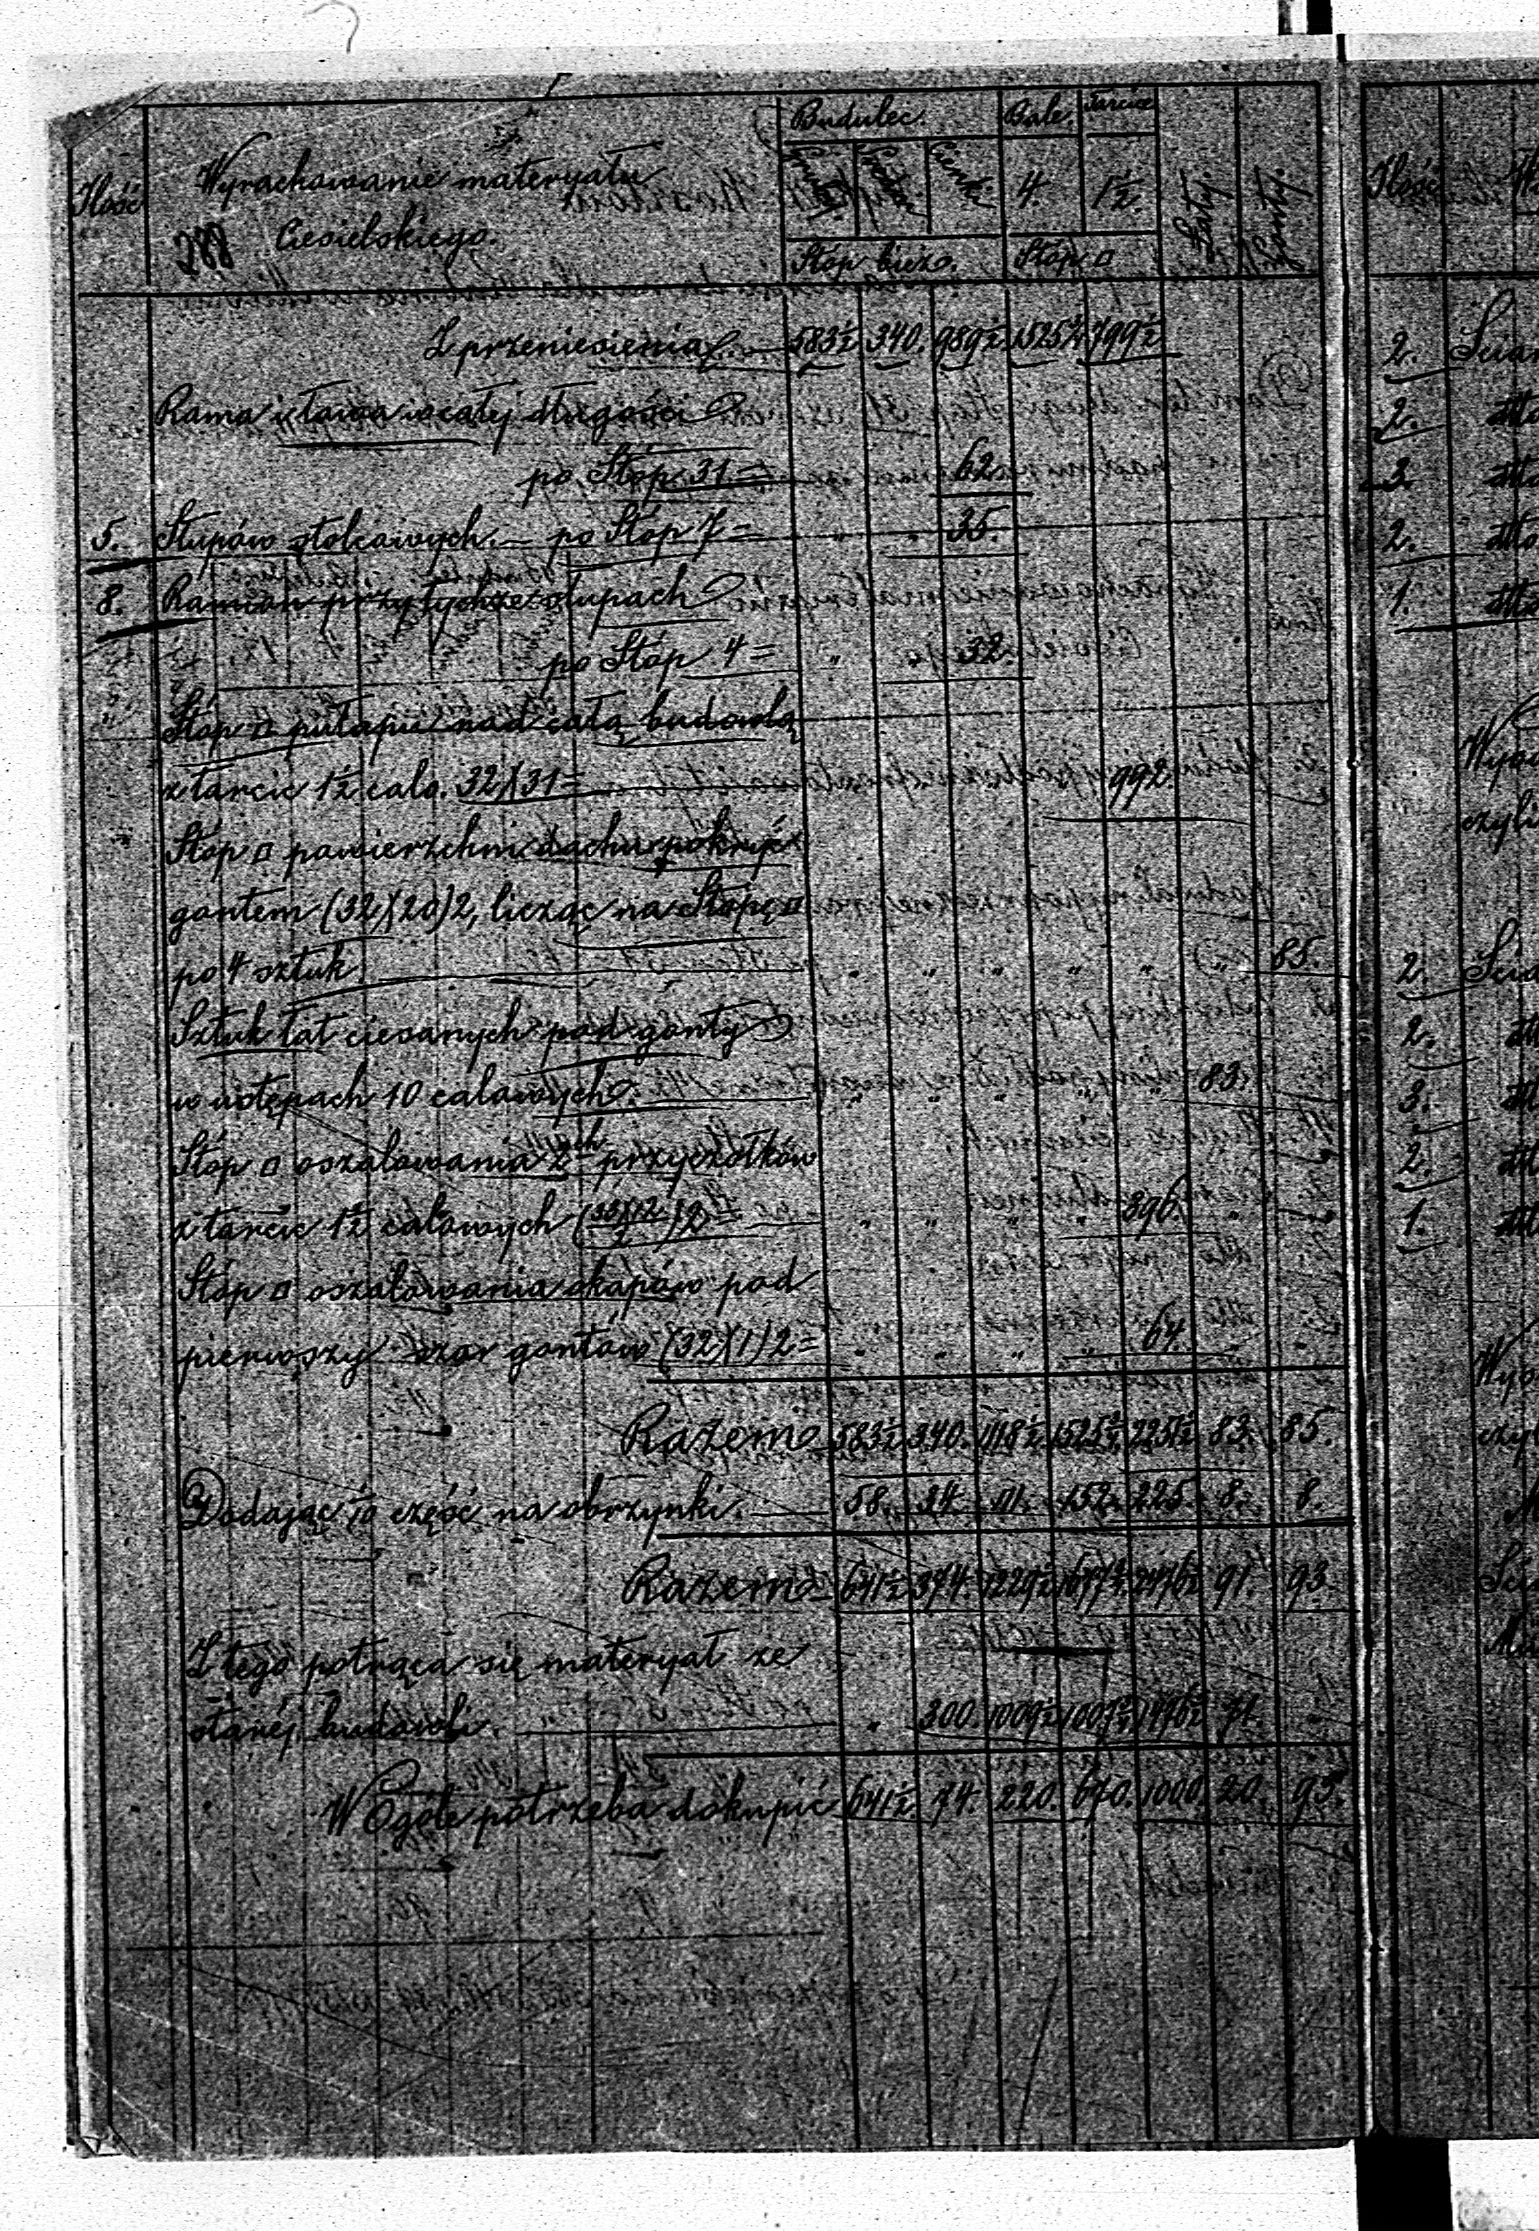 Ilość
Wyrachowanie materyału
Ciesielskiego.
288
Budulec.
Bale.
Tarcice
4.
1½.
Łaty.
Gonty.
Stóp bież.
Stóp □
Z przeniesienia 583½ 340. 989½ 1525½ 799½
Rama i ława w całej długości
po Stóp 31 = 62.
5. Słupów stolcowych. — po Stóp 7 = " " 35.
8. Ramion przy tychże słupach
po Stóp 4 = " " 32.
Stóp □ pułapu nad całą budowlą
z tarcic 1½ calo. 32)(31 = 992.
Stóp □ powierzchni dachu pokryć
gontem (32)(20)2, licząc na Stopę □
po 4 sztuk " " " " " " 85.
Sztuk łat ciesanych pod gonty
w ustępach 10 calowych " " " " " 83.
Stóp □ oszalowania 2ch przyczołków
z tarcic 1½ calowych (33)(12/2)2 = " " " " 396.
Stóp □ oszalowania okapów pod
pierwszy szar gontów (32)(1)2 = " " " " 64.
Razem 583½ 340. 1118½ 1525½ 2251½ 83. 85.
Dodając 1/10 część na obrzynki. 58. 34. 111. 152. 225. 8. 8.
Razem 641½ 374. 1229½ 1677½ 2476½ 91. 93.
Z tego potrąca się materyał ze
starej budowli. " 300. 1009½ 1007½ 1476½ 71.
W Ogóle potrzeba dokupić 641½. 74. 220. 670. 1000. 20. 93.
Ilość
2.
2.
2.
1.
2.
2.
3.
2.
1.